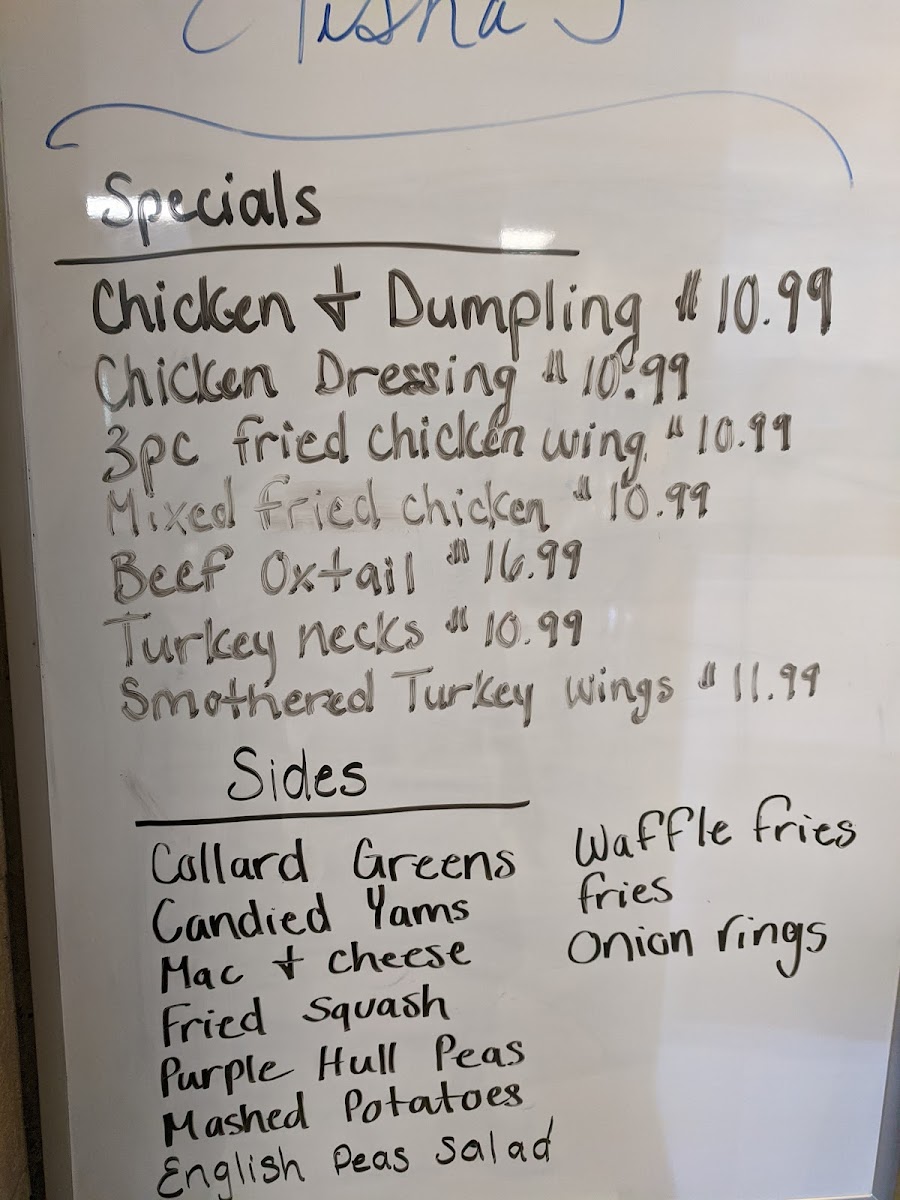 Specials
Chicken + Dumpling $10.99
Chicken Dressing $10.99
3pc fried chicken wing $10.99
Mixed fried chicken $10.99
Beef Oxtail $16.99
Turkey necks $10.99
Smothered Turkey wings $11.99
Sides
Collard Greens
Candied Yams
Mac + cheese
Fried Squash
Purple Hull Peas
Mashed Potatoes
English Peas Salad
Waffle fries
fries
Onion rings